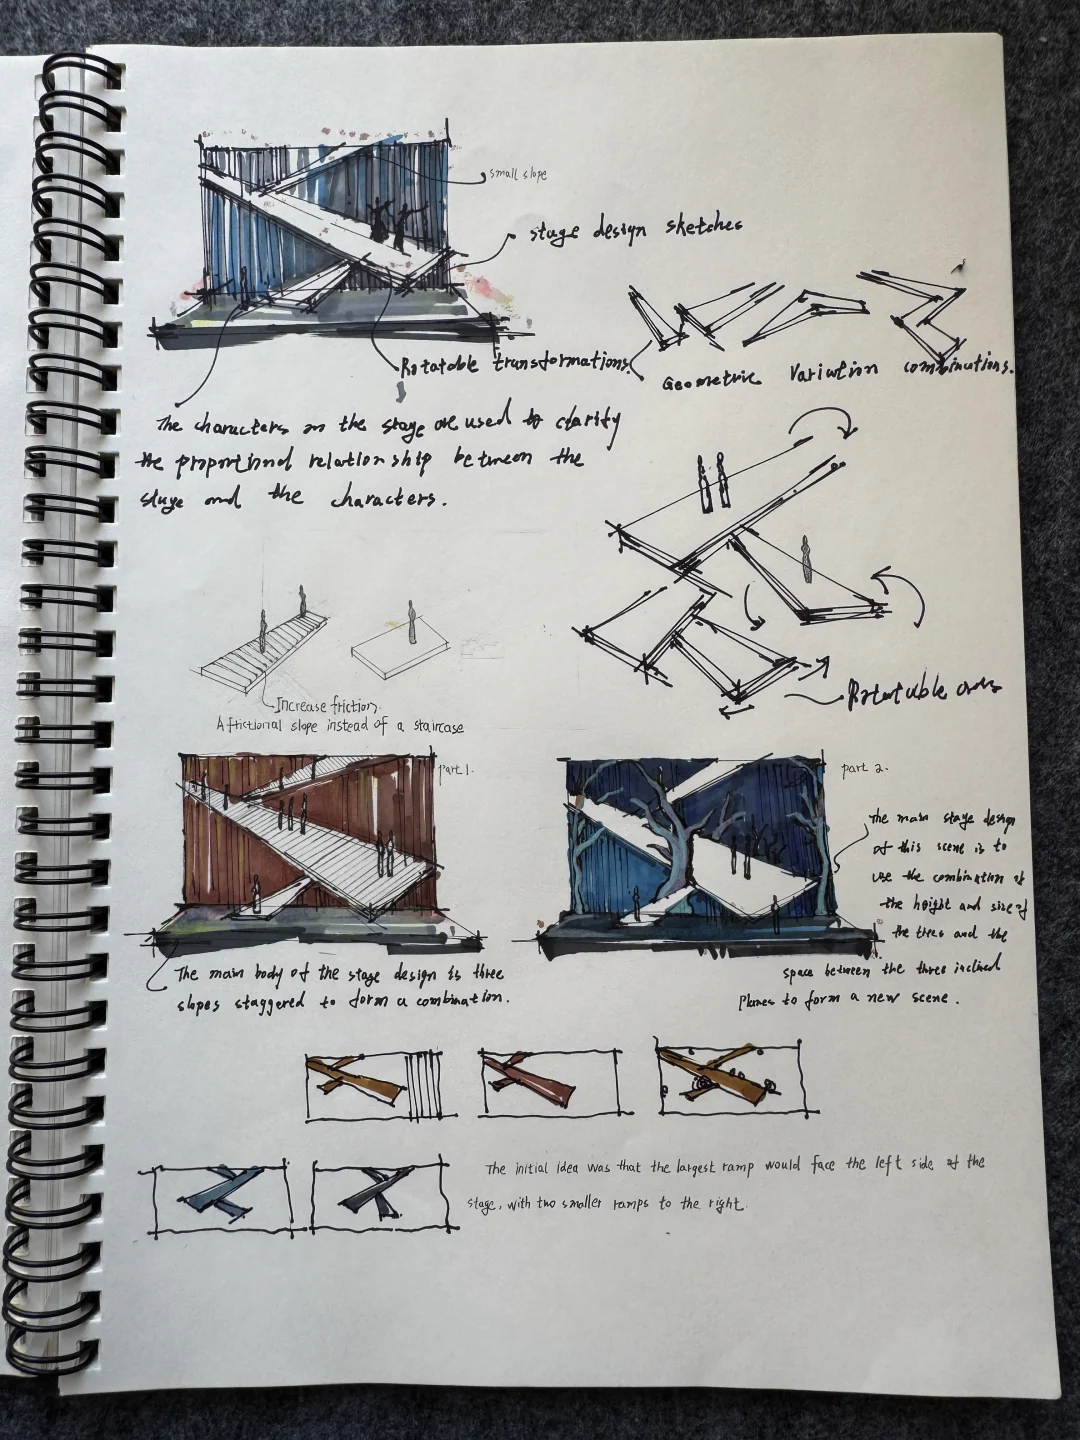 small slope
stage design sketches
Rotatable transformations.
Geometric Variation combinations.
The characters on the stage are used to clarify
the proportional relationship between the
stage and the characters.
Increase friction.
A frictional slope instead of a staircase
Rotatable
part 1.
part 2.
The main stage design
of this scene is to
use the combination of
the height and size of
the trees and the
space between the three inclined
planes to form a new scene.
The main body of the stage design is three
slopes staggered to form a combination.
The initial idea was that the largest ramp would face the left side of the
stage, with two smaller ramps to the right.